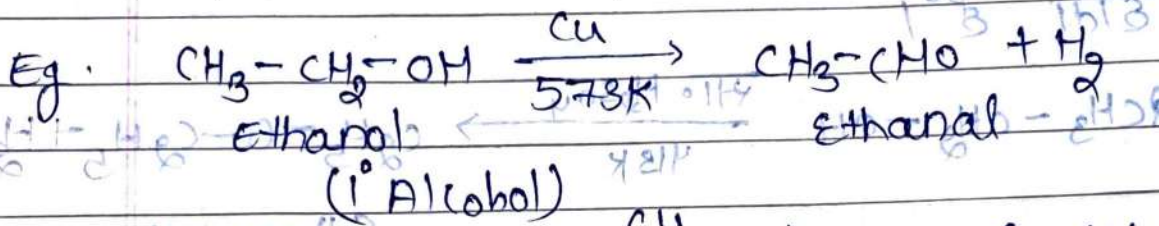 Eg. CH₃-CH₂-OH —Cu/573K→ CH₃-CHO + H₂
Ethanol Ethanal
(1° Alcohol)